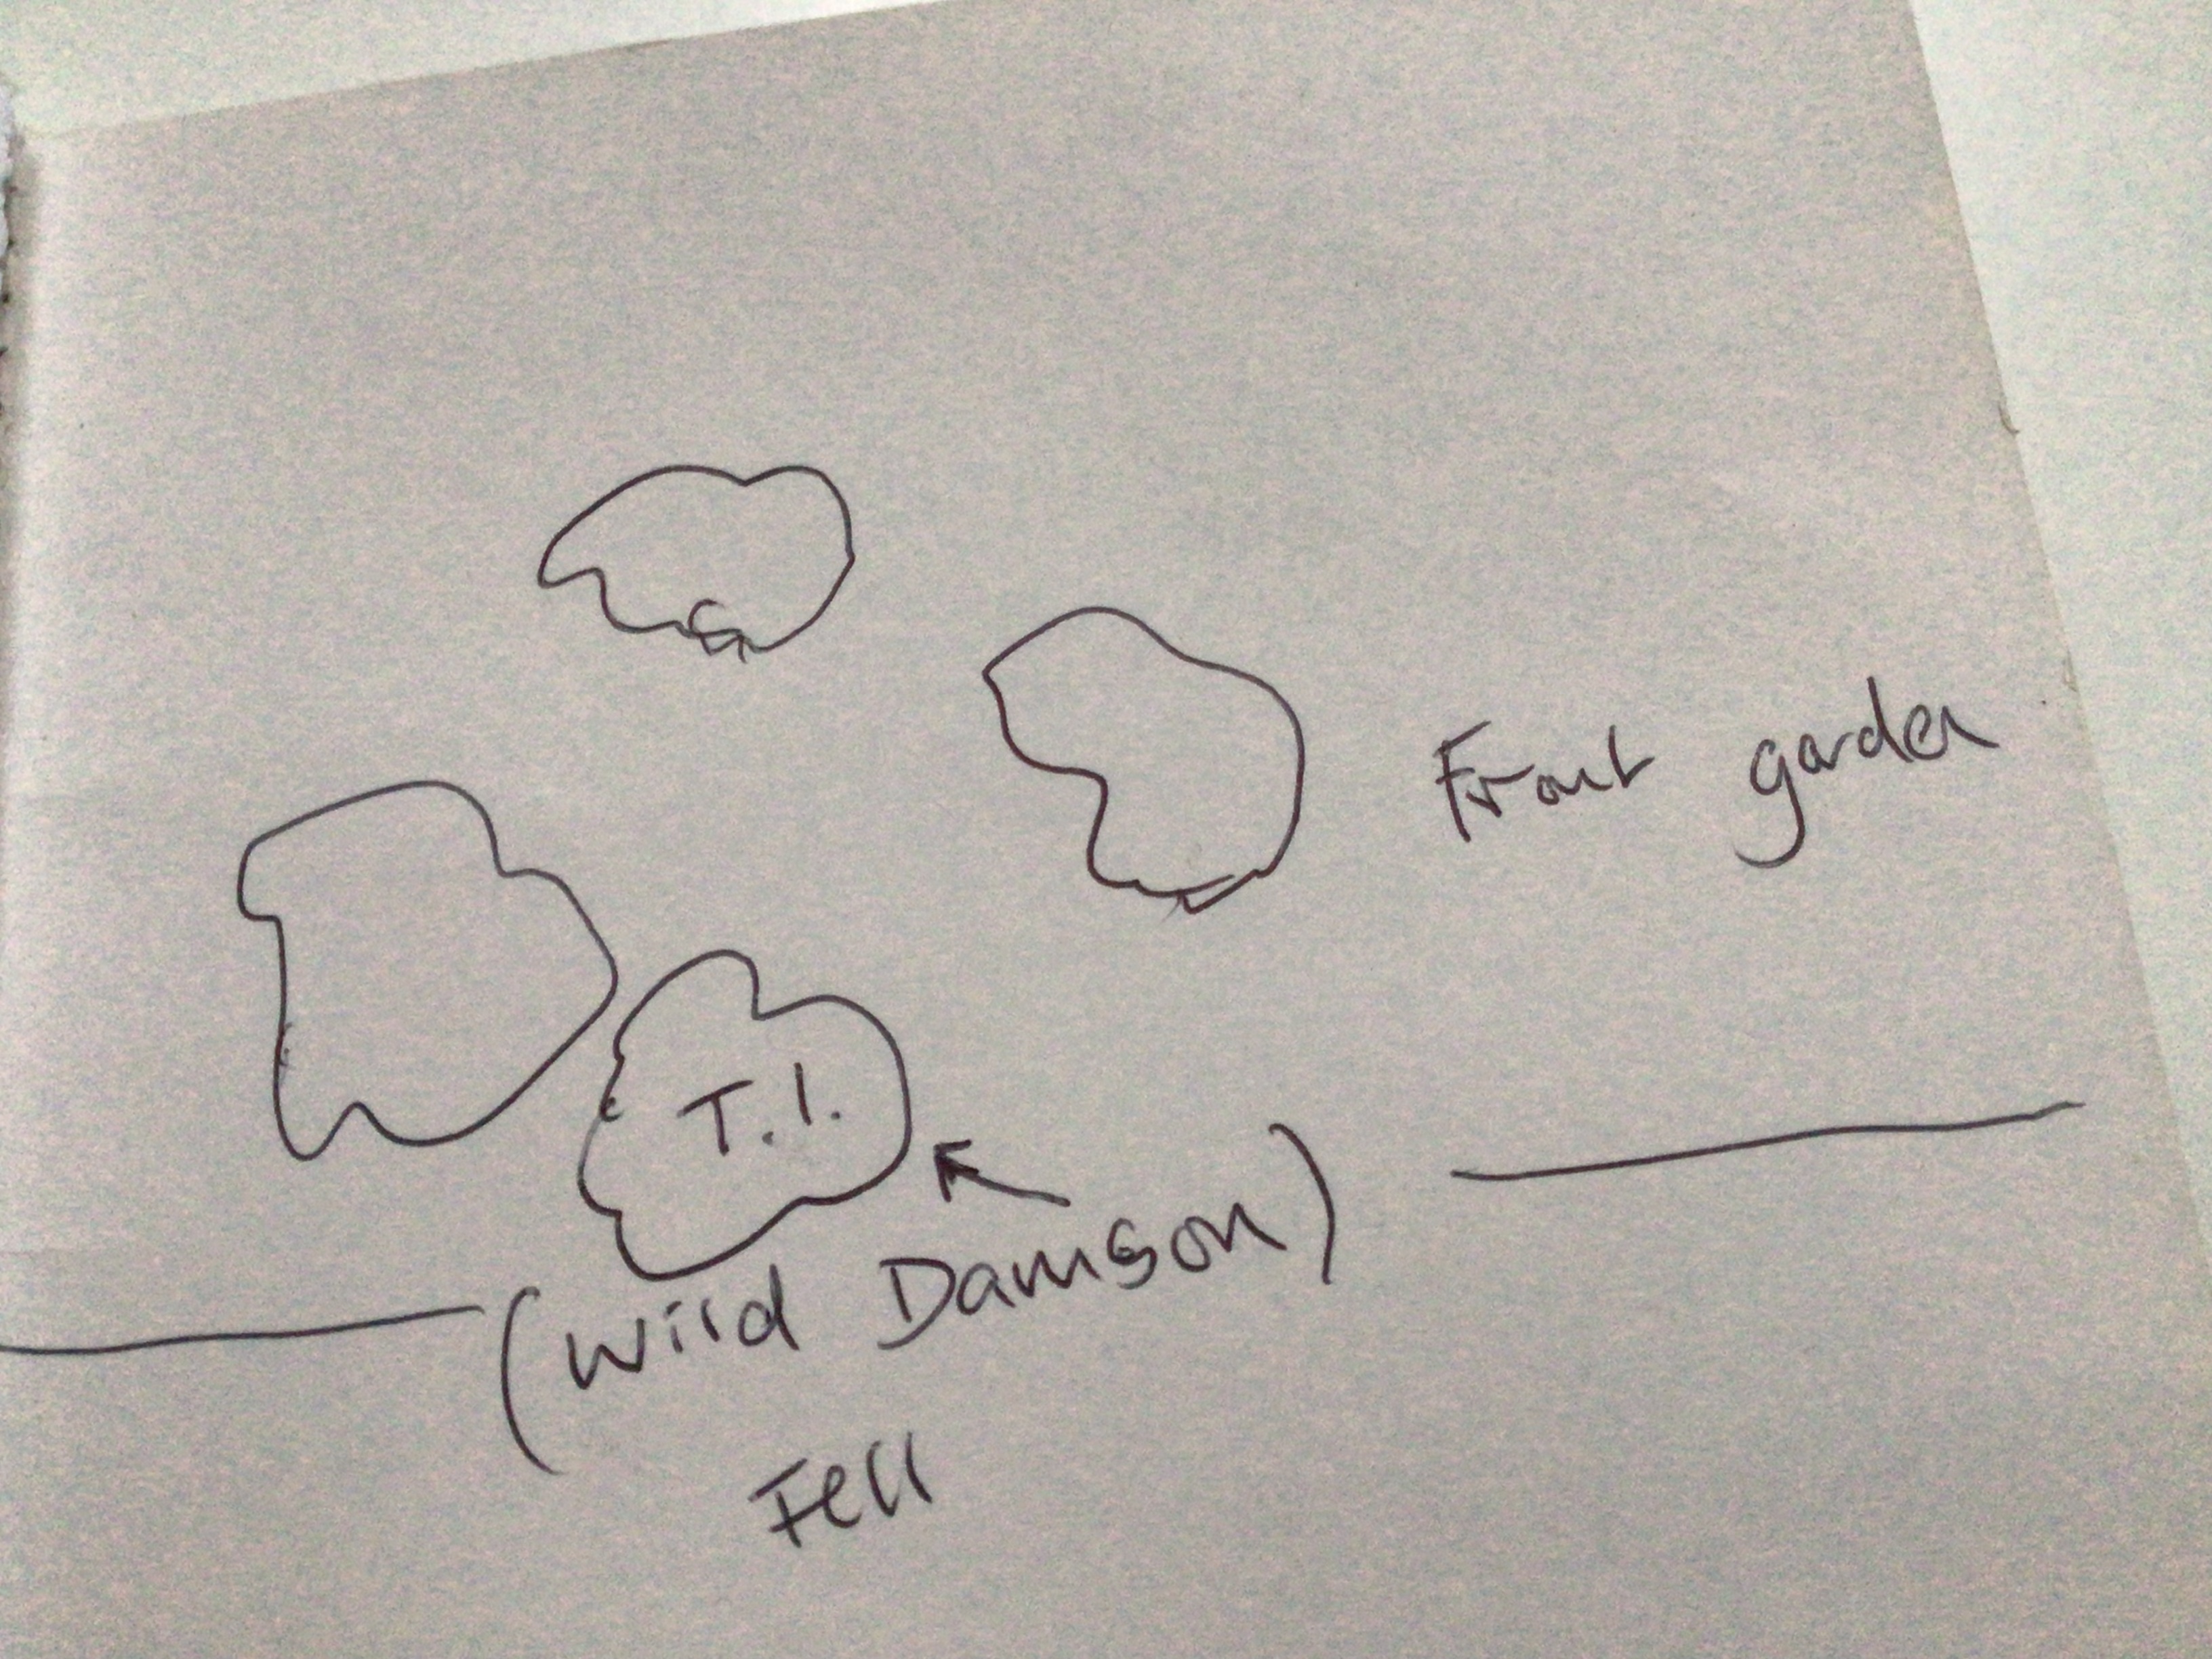 Front garden
T.1.
(Wild Damson)
Fell